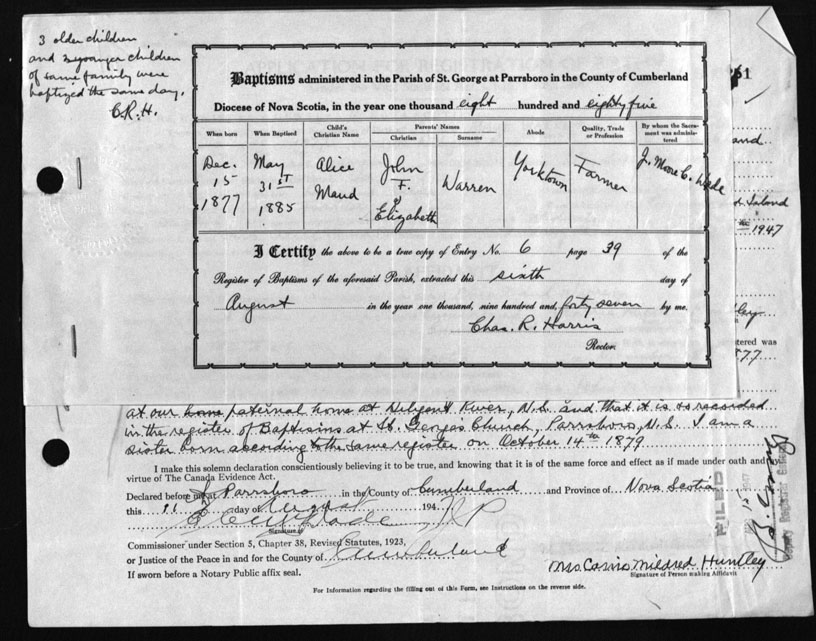 3 older children
and 3 younger children
of same family were
baptized the same day.
C.R.H.
Baptisms administered in the Parish of St. George at Parrsboro in the County of Cumberland
Diocese of Nova Scotia, in the year one thousand eight hundred and eighty five
When born
When Baptised
Child's Christian Name
Parents' Names
Christian
Surname
Abode
Quality, Trade or Profession
By whom the Sacrament was administered
Dec. 15 1877
May 31ST 1885
Alice Maud
John F. & Elizabeth
Warren
Yorktown
Farmer
J. Moore C. Wade
I Certify the above to be a true copy of Entry No. 6 page 39 of the
Register of Baptisms of the aforesaid Parish, extracted this sixth day of
August in the year one thousand, nine hundred and, forty seven by me,
Chas. R. Harris
Rector.
51
and
Island
1947
ley
tered was
77
at our home paternal home at Diligent River, N.S. and that it is so recorded
in the register of Baptisms at St. Georges Church, Parrsboro, N.S. I am a
sister born according to the same register on October 14th 1879
I make this solemn declaration conscientiously believing it to be true, and knowing that it is of the same force and effect as if made under oath and by
virtue of The Canada Evidence Act.
Declared before me at Parrsboro in the County of Cumberland and Province of Nova Scotia
this 11 day of August 194
Signature of
J P
Commissioner under Section 5, Chapter 38, Revised Statutes, 1923,
or Justice of the Peace in and for the County of Cumberland
If sworn before a Notary Public affix seal.
Mrs Casmo Mildred Huntley
Signature of Person making Affidavit
For Information regarding the filling out of this Form, see Instructions on the reverse side.
FILED